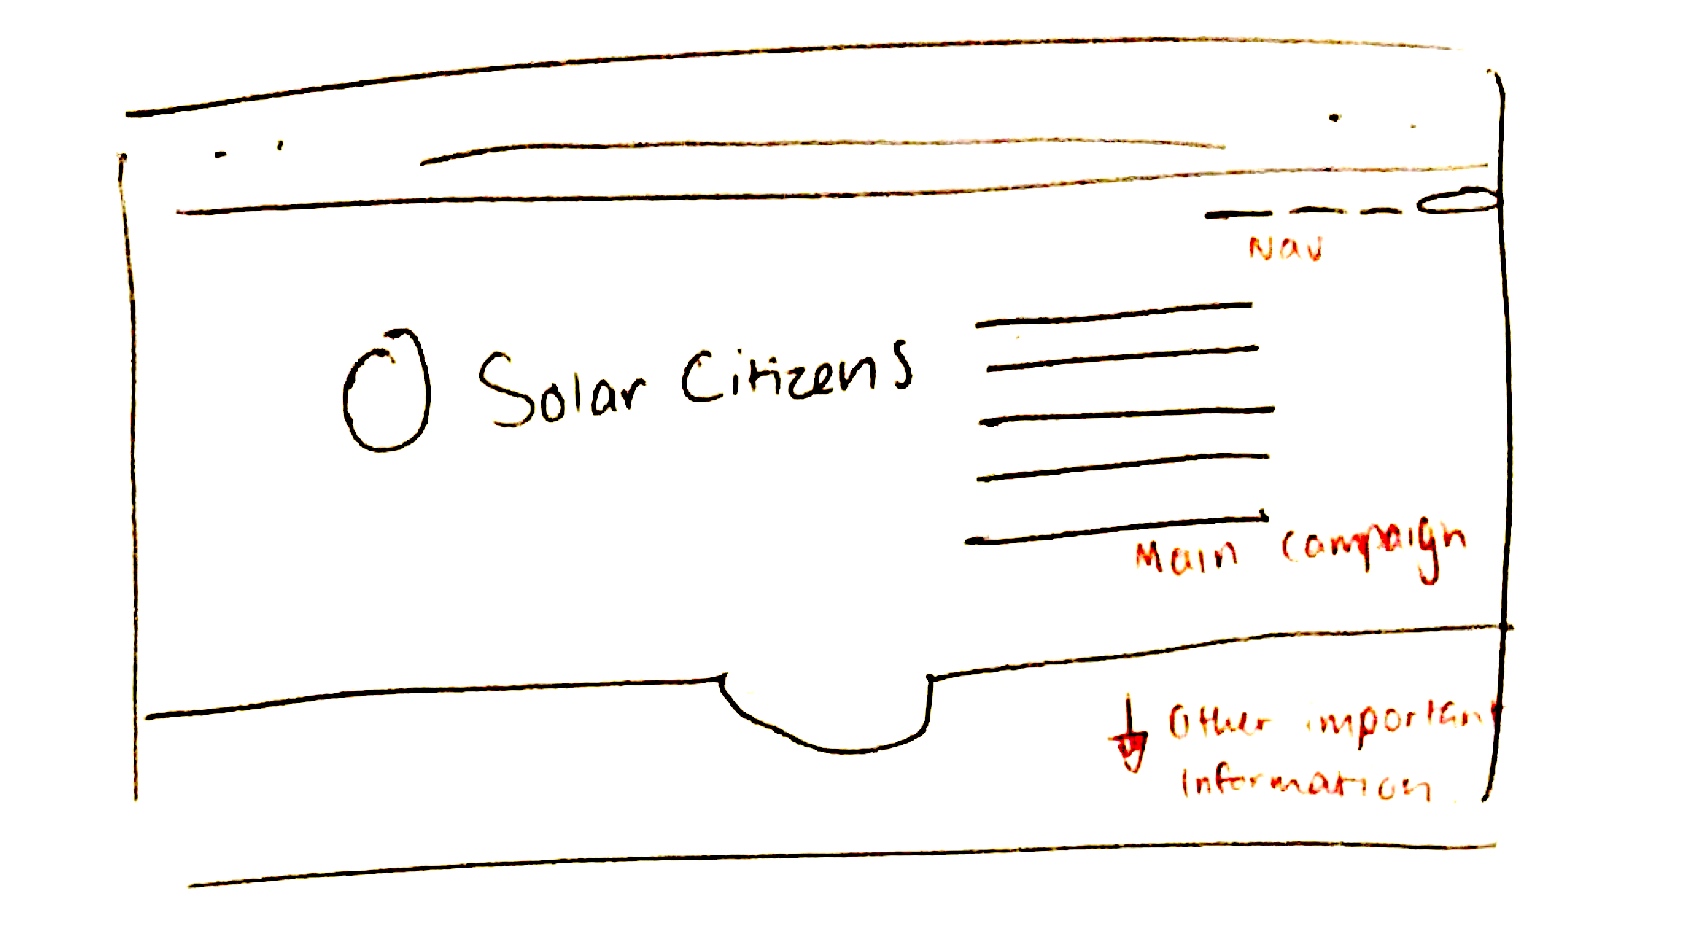 Nav
Solar Citizens
Main campaign
Other important
information